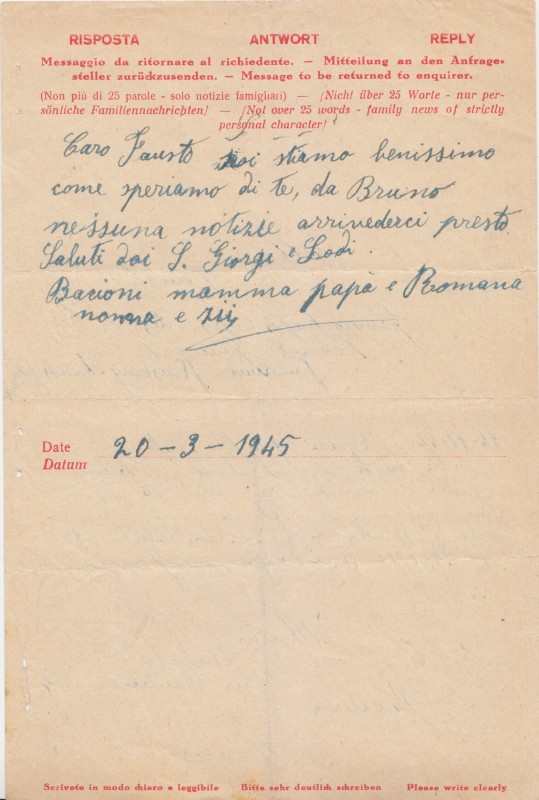 RISPOSTA ANTWORT REPLY
Messaggio da ritornare al richiedente. — Mitteilung an den Anfrage-
steller zurückzusenden. — Message to be returned to enquirer.
(Non più di 25 parole - solo notizie famigliari) — (Nicht über 25 Worte - nur per-
sönliche Familiennachrichten) — (Not over 25 words - family news of strictly
personal character)
Caro Fausto noi stiamo benissimo
come speriamo di te, da Bruno
nessuna notizie arrivederci presto.
Saluti dai S. Giorgi e Lodi.
Bacioni mamma papà e Romana
nonna e zii
Date 20-3-1945
Datum
Scrivete in modo chiaro e leggibile Bitte sehr deutlich schreiben Please write clearly